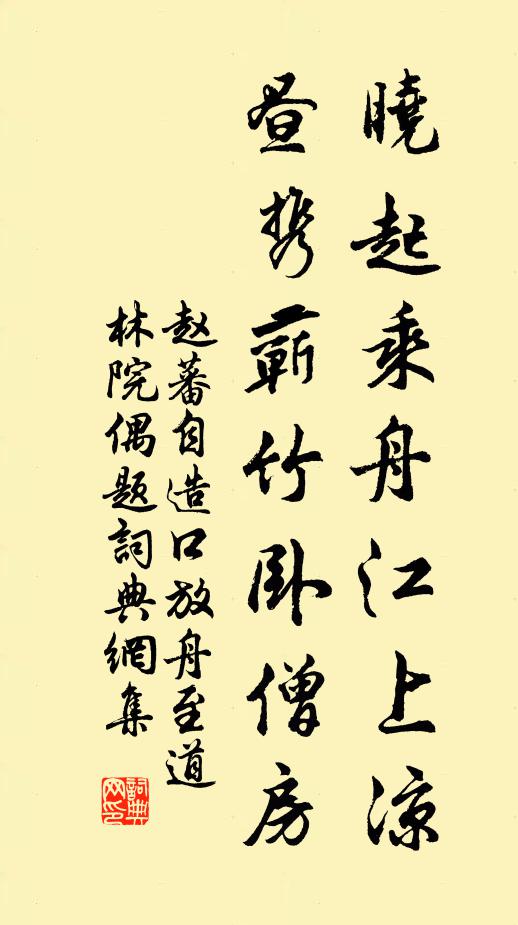 曉起乘舟江上涼
晝攜蘄竹臥僧房
赵蕃自造口放舟至道
林院偶题詞典網集
詞典
网印